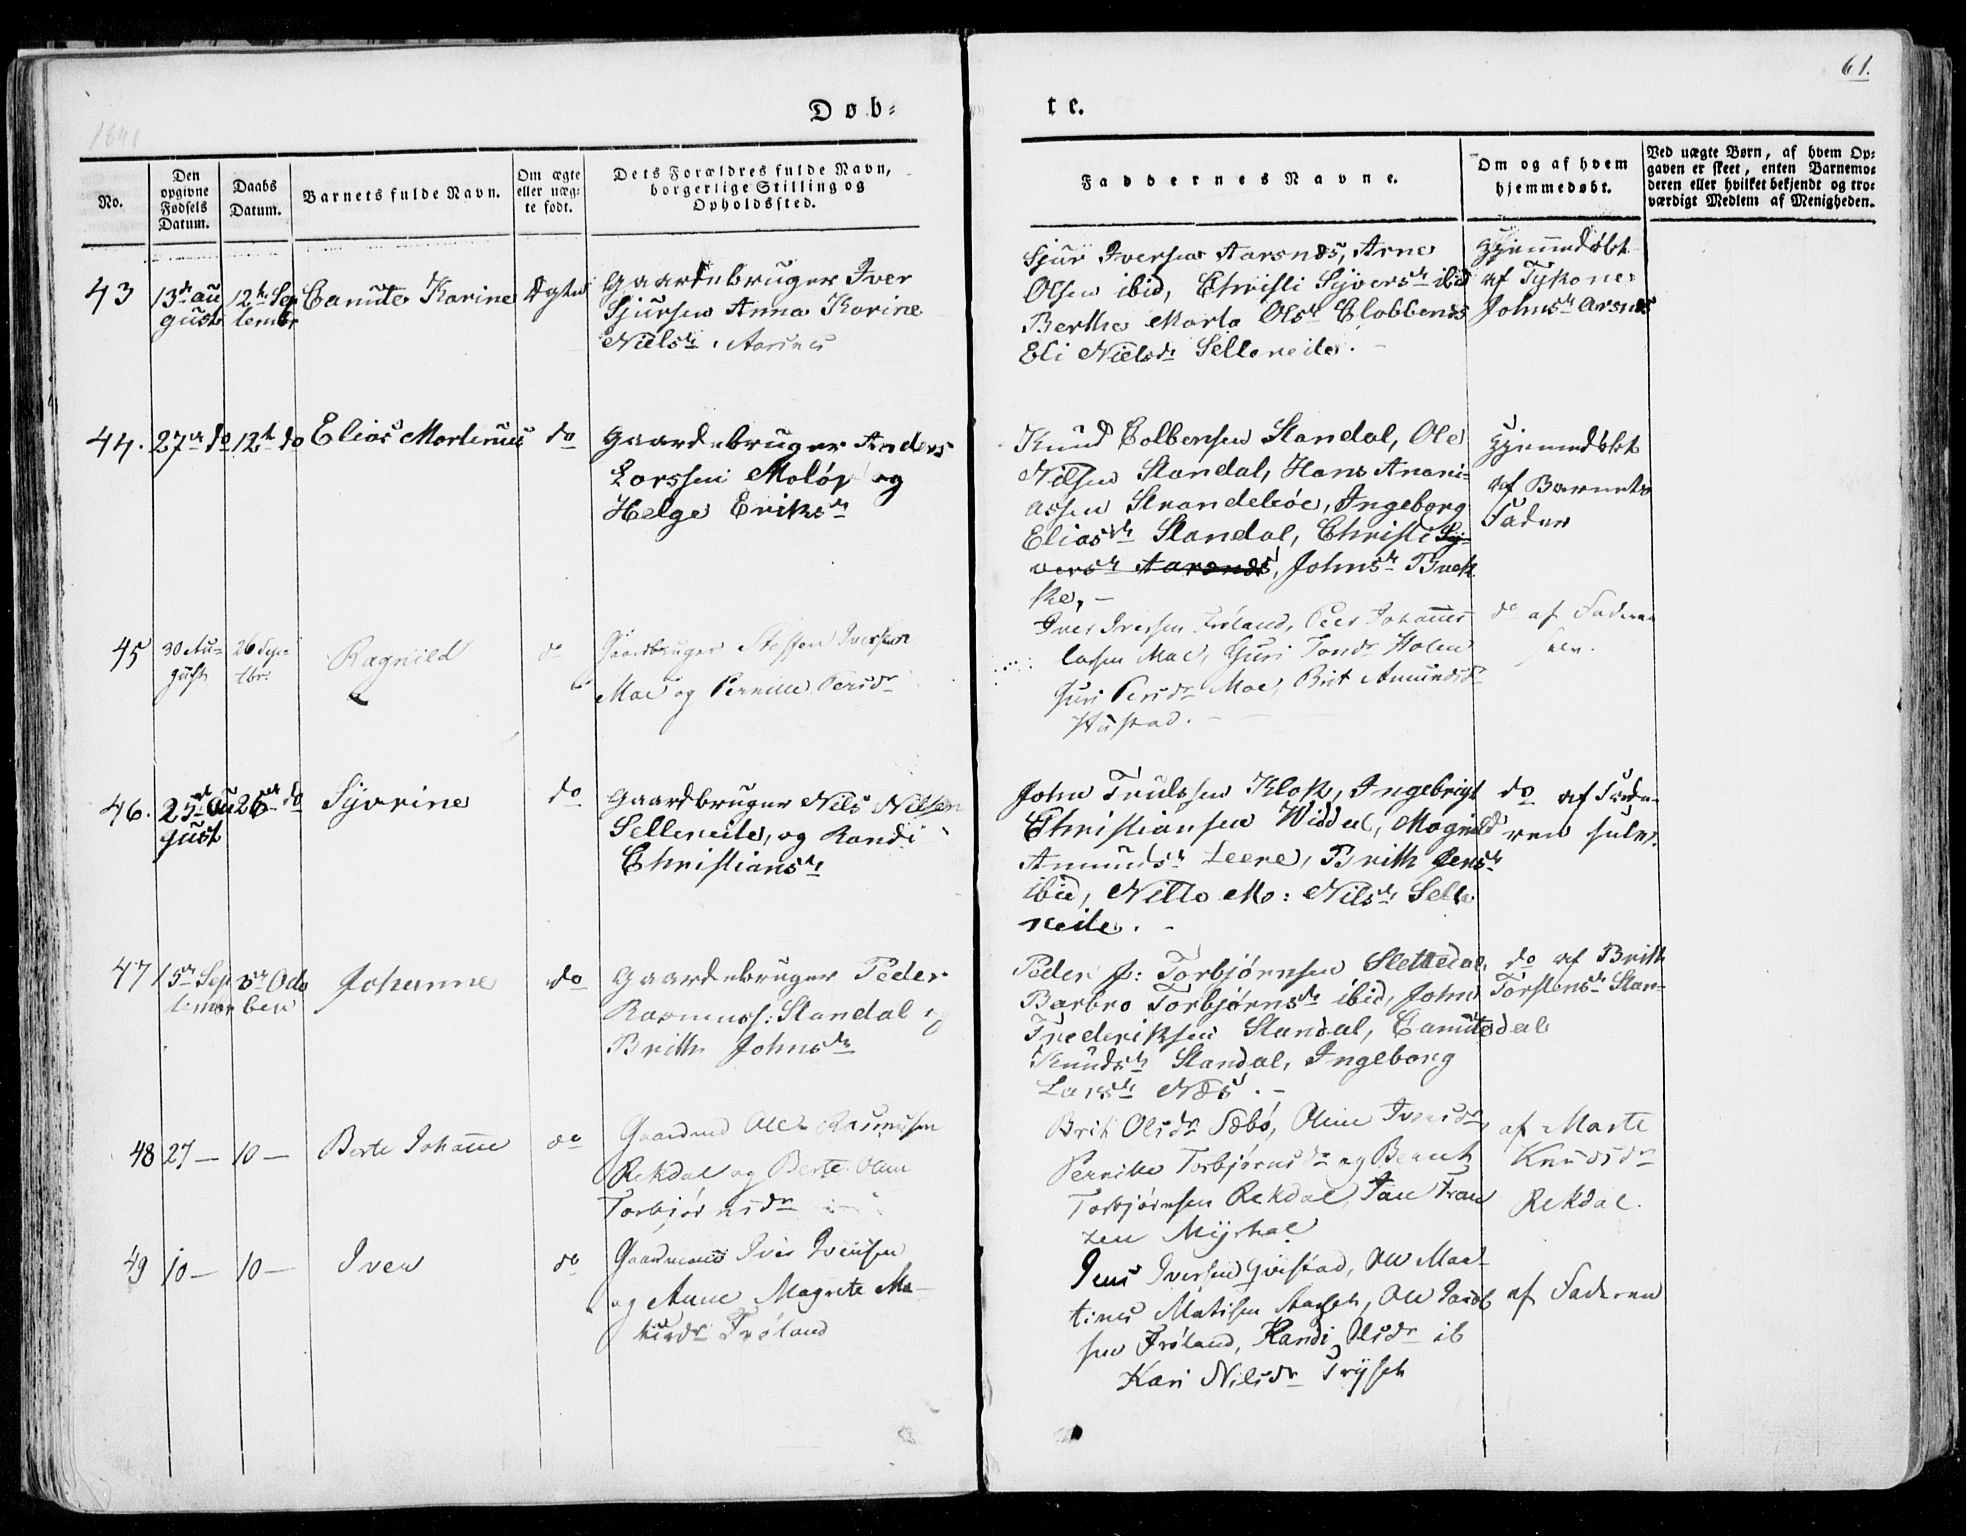 61.
Døb-
te.
1841
No.
Den opgivne Fødsels Datum.
Daabs Datum.
Barnets fulde Navn.
Om ægte eller uægte født.
Dets Forældres fulde Navn, borgerlige Stilling og Opholdssted.
Faddernes Navne.
Om og af hvem hjemmedøbt.
Ved uægte Børn, af hvem Opgaven er skeet, enten Barnemoderen eller hvilket bekjendt og troværdigt Medlem af Menigheden.
43
13de au
gust
12te Sep
tembr
Canute Karine
Ægte
Gaardebruger Iver
Sjursen Anna Karine
Nielsdr. Aarsnes
Sjur Iversen Aarsnes, Arne
Olsen ibid, Christi Syversdr ibid
Berthe Marta Olsdr
Eli Nielsdr Selleneite. -
Hjemmedøbt
af
Johnsdr Arsnes
44.
27de do
12te do
Elias Martinus
do
Gaardebruger Anders
Larssen Moløs og
Helge Eriksdr
Knud Colbensen Standal, Ole
Nilsen Standal, Hans Anani-
assen Strandebøe, Ingeborg
Eliasdr Standal, Christi Sy-
versdr Aarsnes, Johnsdr Brek
ke, -
Hjemmedøbt
af Barnets
Fader
45
30 Au-
gust
26 Sep-
tbr.
Ragnild
do
Gaardbruger Steffen Iversen
Moe og Pernille Persdr
Iver Iversen Frøland, Peer Johannes
larsen Moe, Guri Jonsdr Holen
Guri Persdr Moe, Brit Amundsdr
Hustad. -
do af Faderen
selv.
46.
25de Au
gust
26de do
Syvrine
do
Gaardbruger Nils Nilsen
Selleneite, og Randi
Christiansdr
John Trulssen Klok, Ingebrigt
Christiansen Widdal, Magnild
Amundsdr Leere, Brith Jensdr
ibid, Nille M: Nilsdr Selle
neite. -
do af Fade-
ren selv.
47
15de Sep
tember
3de Octo
ber
Johanne
do
Gaardebruger Peder
Rasmuss: Standal og
Brith Johnsdr
Peder J: Torbjørnsen Slettedal,
Barbro Torbjørnsdr ibid, John
Frederiksen Standal, Canute
Knudsdr Standal, Ingeborg
Larsdr Næs. -
do af Brith
Torstensdr Stan-
dal
48
27 -
10 -
Berte Johanne
do
Gaardmd Ole Rasmusen
Rekdal og Berte Oline
Torbjørnsdr
Brit Olsdr Sæbø, Oline Iversdr,
Pernille Torbjørnsdr og Bernt
Torbjørnsen Rekdal, Jan Fran
zen Myrhol
af Marte
Knudsdr
Rekdal.
49
10 -
10 -
Iver
do
Gaardmand Iver Iversen
og Anne Magrete Ma-
Frøland
Jens Iversen Gjvistad, Ole Mar-
tines Matisen Aarseth, Ole Jacob
sen Frøland, Randi Olsdr ib
Kari Nilsdr Tryset
af Faderen